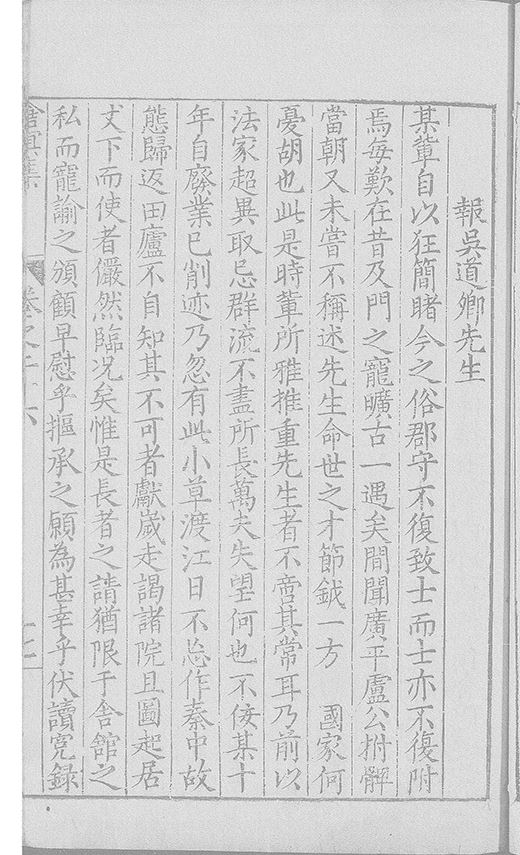 報吳道卿先生
某輩自以狂簡睹今之俗郡守不復致士而士亦不復附
焉每歎在昔及門之寵曠古一遇矣間聞廣平盧公拊髀
當朝又未嘗不稱述先生命世之才節鉞一方　國家何
憂胡也此是時輩所雅推重先生者不啻其常耳乃前以
法家超異取忌群流不盡所長萬夫失望何也不佞某十
年自廢業已削迹乃忽有此小草渡江日不忘作秦中故
態歸返田廬不自知其不可者獻歲走謁諸院且圖起居
丈下而使者儼然臨况矣惟是長者之請猶限于舍館之
私而寵諭之頒顧早慰乎摳承之願為甚幸乎伏讀寃録
滄溟集　卷之二十八